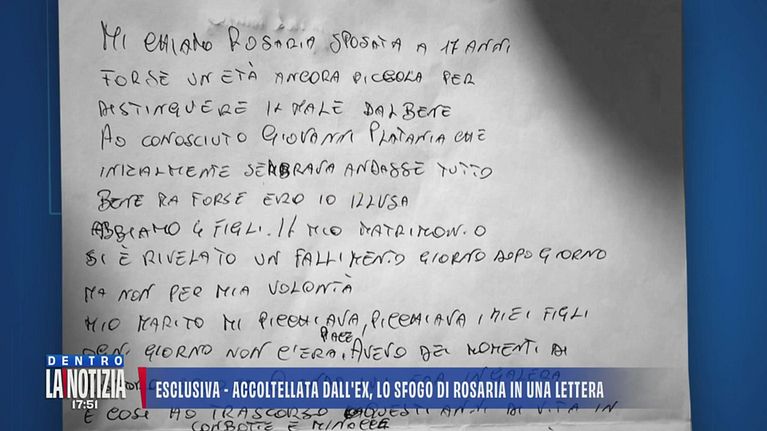 MI CHIAMO ROSARIA SPOSATA A 17 ANNI
FORSE UN ETÀ ANCORA PICCOLA PER
DISTINGUERE IL MALE DAL BENE
AO CONOSCIUTO GIOVANNI PLATANIA CHE
INIZIALMENTE SEMBRAVA ANDASSE TUTTO
BENE MA FORSE ERO IO ILLUSA
ABBIAMO 4 FIGLI. IL MIO MATRIMONIO
SI È RIVELATO UN FALLIMENTO GIORNO DOPO GIORNO
MA NON PER MIA VOLONTÀ
MIO MARITO MI PICCHIAVA, PICCHIAVA I MIEI FIGLI
OGNI GIORNO NON C'ERA PACE. AVEVO DEI MOMENTI DI
E COSI AO TRASCORSO QUESTI ANNI DI VITA IN
CONBOTTE E MINACCE
DENTRO
LA NOTIZIA
17:51
ESCLUSIVA - ACCOLTELLATA DALL'EX, LO SFOGO DI ROSARIA IN UNA LETTERA